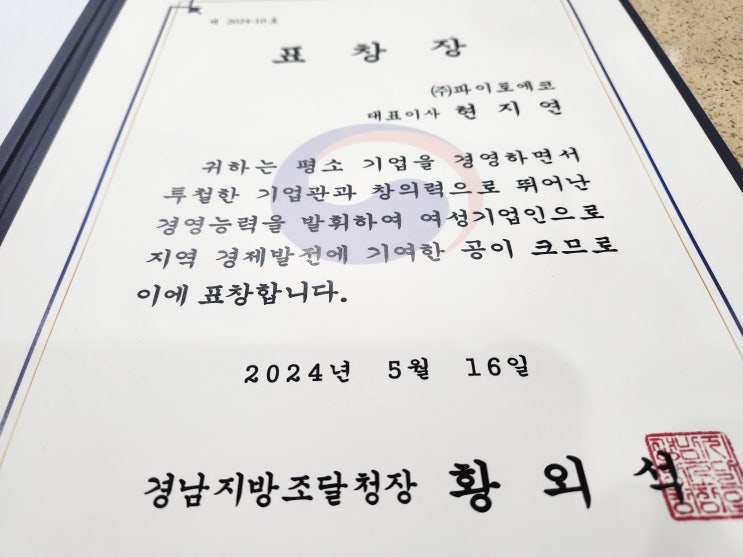 제 2024-10호
표 창 장
㈜파이토에코
대표이사 현 지 연
귀하는 평소 기업을 경영하면서
투철한 기업관과 창의력으로 뛰어난
경영능력을 발휘하여 여성기업인으로
지역 경제발전에 기여한 공이 크므로
이에 표창합니다.
2024년 5월 16일
경남지방조달청장 황 외 석